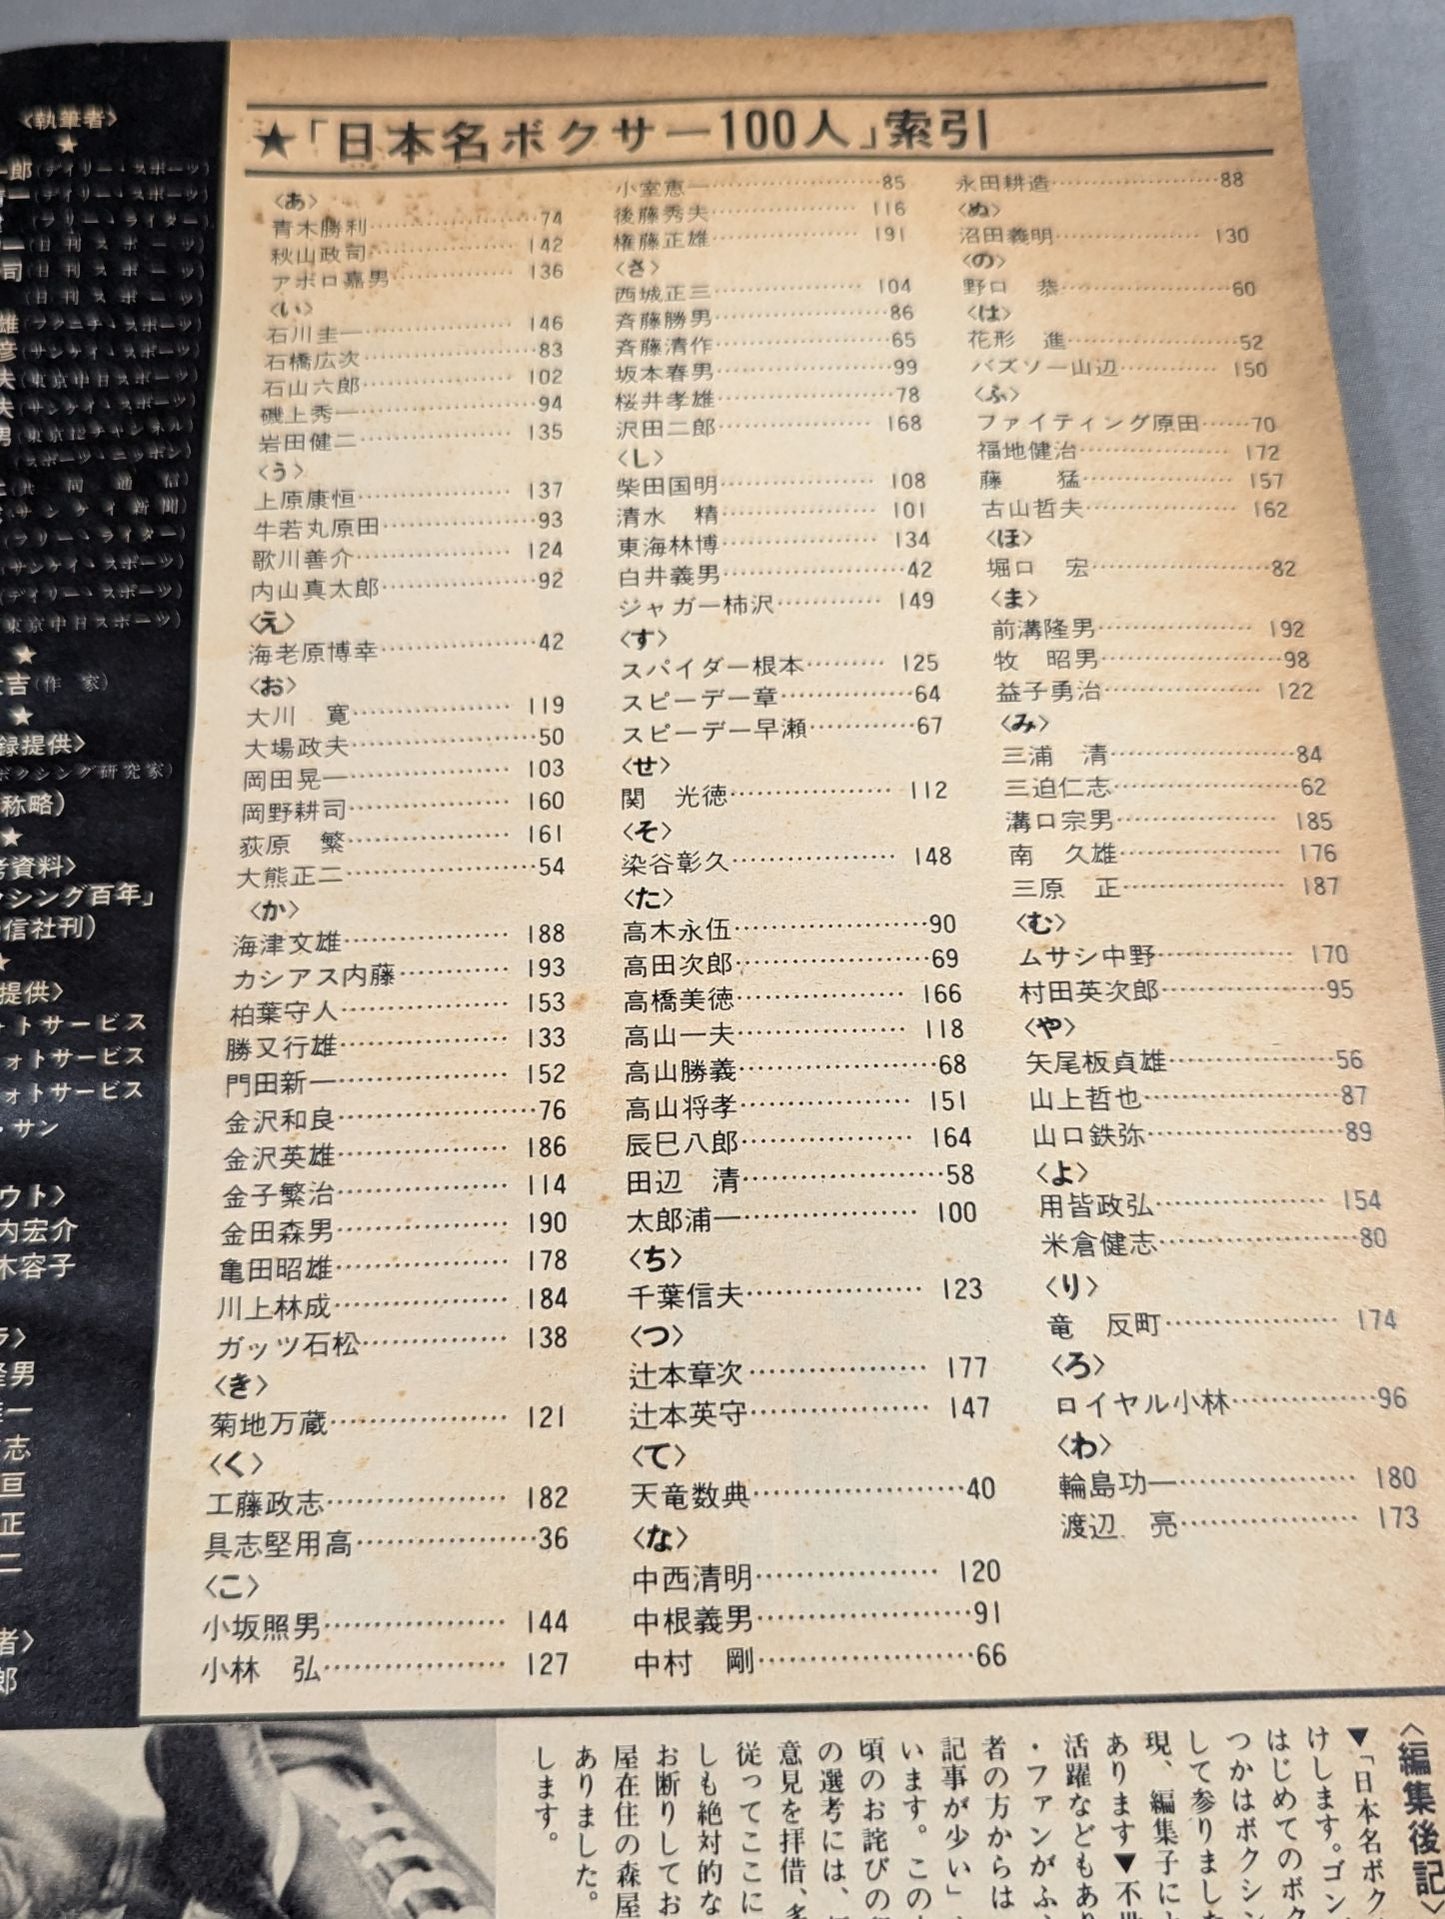 〈執筆者〉
★
郎(デイリー・スポーツ)
一(デイリー・スポーツ)
(フリー・ライター)
一(日刊スポーツ)
司(日刊スポーツ)
(日刊スポーツ)
雄(フクニチ・スポーツ)
彦(サンケイ・スポーツ)
夫(東京中日スポーツ)
夫(サンケイ・スポーツ)
男(東京12チャンネル)
(スポーツ・ニッポン)
(共同通信)
(サンケイ新聞)
(フリー・ライター)
(サンケイ・スポーツ)
(デイリー・スポーツ)
(東京中日スポーツ)
★
吉(作家)
★
録提供〉
ボクシング研究家)
称略)
★
考資料〉
クシング百年」
信社刊)
★
提供〉
ォトサービス
ォトサービス
ォトサービス
・サン
ウト〉
内宏介
木容子
ラ〉
隆男
一
志
亘
正
二
者〉
郎
★「日本名ボクサー100人」索引
〈あ〉
青木勝利……74
秋山政司……142
アポロ嘉男……136
〈い〉
石川圭一……146
石橋広次……83
石山六郎……102
磯上秀一……94
岩田健二……135
〈う〉
上原康恒……137
牛若丸原田……93
歌川善介……124
内山真太郎……92
〈え〉
海老原博幸……42
〈お〉
大川 寛……119
大場政夫……50
岡田晃一……103
岡野耕司……160
荻原 繁……161
大熊正二……54
〈か〉
海津文雄……188
カシアス内藤……193
柏葉守人……153
勝又行雄……133
門田新一……152
金沢和良……76
金沢英雄……186
金子繁治……114
金田森男……190
亀田昭雄……178
川上林成……184
ガッツ石松……138
〈き〉
菊地万蔵……121
〈く〉
工藤政志……182
具志堅用高……36
〈こ〉
小坂照男……144
小林 弘……127
小室恵一……85
後藤秀夫……116
権藤正雄……191
〈さ〉
西城正三……104
斉藤勝男……86
斉藤清作……65
坂本春男……99
桜井孝雄……78
沢田二郎……168
〈し〉
柴田国明……108
清水 精……101
東海林博……134
白井義男……42
ジャガー柿沢……149
〈す〉
スパイダー根本……125
スピーデー章……64
スピーデー早瀬……67
〈せ〉
関 光徳……112
〈そ〉
染谷彰久……148
〈た〉
高木永伍……90
高田次郎……69
高橋美徳……166
高山一夫……118
高山勝義……68
高山将孝……151
辰巳八郎……164
田辺 清……58
太郎浦一……100
〈ち〉
千葉信夫……123
〈つ〉
辻本章次……177
辻本英守……147
〈て〉
天竜数典……40
〈な〉
中西清明……120
中根義男……91
中村 剛……66
永田耕造……88
〈ぬ〉
沼田義明……130
〈の〉
野口 恭……60
〈は〉
花形 進……52
バズソー山辺……150
〈ふ〉
ファイティング原田……70
福地健治……172
藤 猛……157
古山哲夫……162
〈ほ〉
堀口 宏……82
〈ま〉
前溝隆男……192
牧 昭男……98
益子勇治……122
〈み〉
三浦 清……84
三迫仁志……62
溝口宗男……185
南 久雄……176
三原 正……187
〈む〉
ムサシ中野……170
村田英次郎……95
〈や〉
矢尾板貞雄……56
山上哲也……87
山口鉄弥……89
〈よ〉
用皆政弘……154
米倉健志……80
〈り〉
竜 反町……174
〈ろ〉
ロイヤル小林……96
〈わ〉
輪島功一……180
渡辺 亮……173
〈編集後記〉
▼「日本名ボク
けします。ゴン
はじめてのボク
つかはボクシン
して参りました
現、編集子に
あります▼不世
活躍などもあり
・ファンがふ
者の方からは
記事が少い」
います。この
頃のお詫びの
の選考には、
意見を拝借、多
従ってここに
しも絶対的な
お断りしてお
屋在住の森屋
ありました。
します。